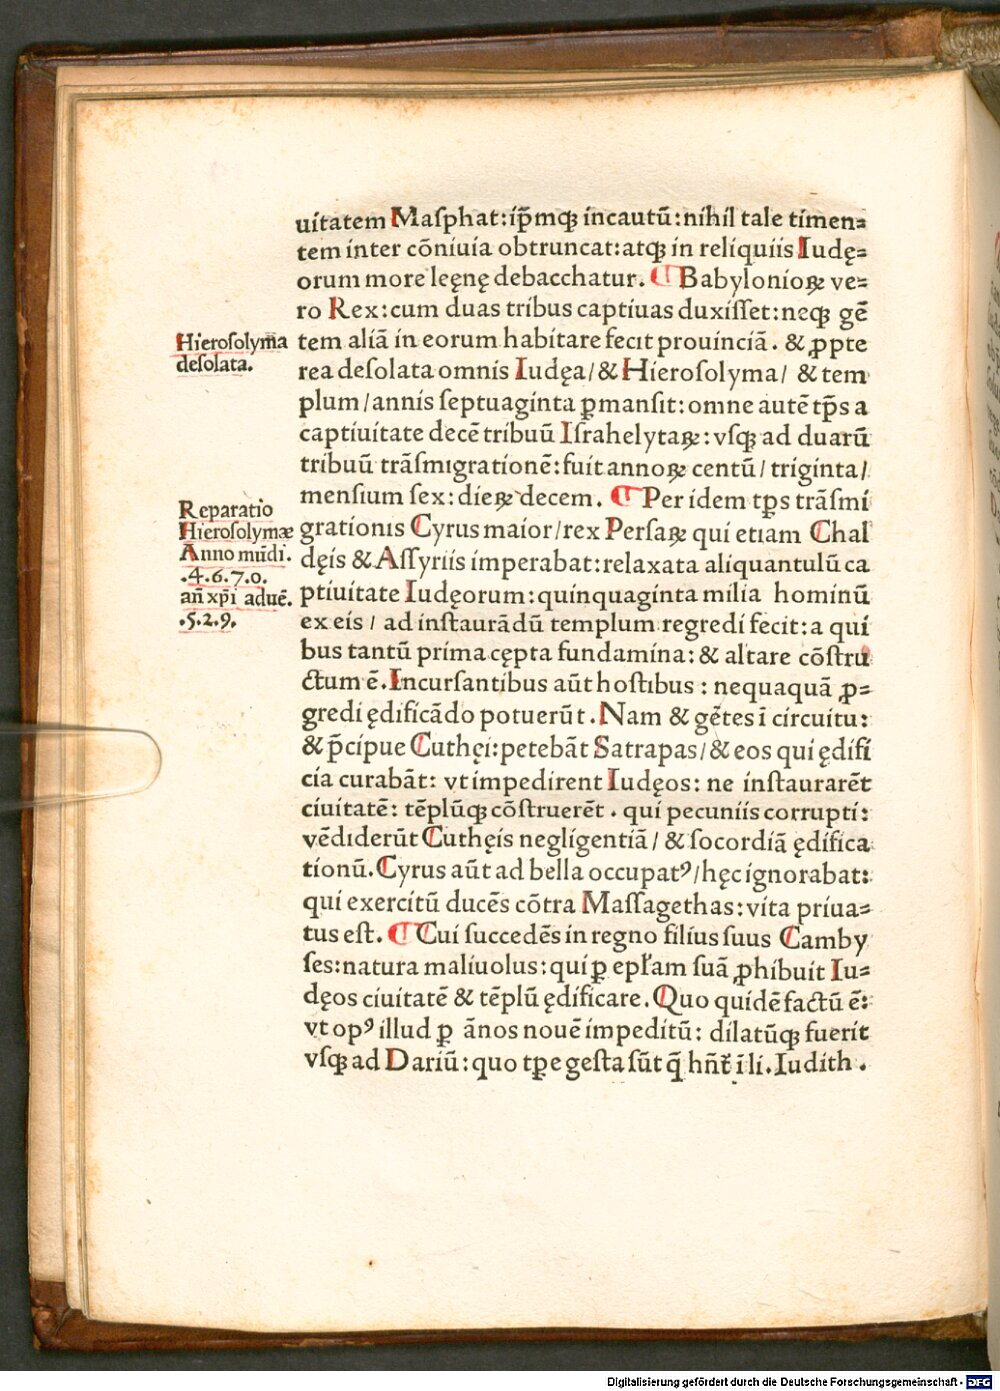 uitatem Maſphat:ip̄mqꝫ incautū:nihil tale timen⸗
tem inter cōniuia obtruncat:atqꝫ in reliquiis Iudę⸗
orum more leęnę debacchatur. ¶ Babylonioꝝ ve⸗
ro Rex:cum duas tribus captiuas duxiſſet:neqꝫ gē
tem aliā in eorum habitare fecit prouinciā. & ꝓpte
rea deſolata omnis Iudęa/& Hieroſolyma/ & tem
plum/annis ſeptuaginta ꝑmanſit:omne autē tp̄s a
captiuitate decē tribuū Iſrahelytaꝝ:vſqꝫ ad duarū
tribuū trāſmigrationē:fuit annoꝝ centū/triginta/
menſium ſex:dieꝝ decem. ¶ Per idem tp̄s trāſmi
grationis Cyrus maior/rex Perſaꝝ qui etiam Chal
dęis & Aſſyriis imperabat:relaxata aliquantulū ca
ptiuitate Iudęorum:quinquaginta milia hominū
ex eis/ ad inſtaurādū templum regredi fecit:a qui
bus tantū prima cępta fundamina:& altare cōſtru
ctum ē.Incurſantibus aūt hoſtibus : nequaquā ꝓ⸗
gredi ędificādo potuerūt.Nam & gētes ī circuitu:
& p̄cipue Cuthęi:petebāt Satrapas/& eos qui ędifi
cia curabāt: vt impedirent Iudęos: ne inſtaurarēt
ciuitatē: tēplūqꝫ cōſtruerēt . qui pecuniis corrupti:
vēdiderūt Cuthęis negligentiā/ & ſocordiā ędifica
tionū.Cyrus aūt ad bella occupatꝰ/hęc ignorabat:
qui exercitū ducēs cōtra Maſſagethas:vita priua⸗
tus eſt. ¶ Cui ſuccedēs in regno filius ſuus Camby
ſes:natura maliuolus:qui ꝑ epł'am ſuā ꝓhibuit Iu⸗
dęos ciuitatē & tēplū ędificare.Quo quidē factū ē:
vt opꝰ illud ꝑ ānos nouē impeditū: dilatūqꝫ fuerit
vſqꝫ ad Dariū:quo tꝑe geſta ſūt q̄ hn̄t ī li.Iudith .
Hieroſolym̄a
deſolata.
Reparatio
Hieroſolymæ
Anno mūdi.
.4.6.7.0.
an̄ xp̄i aduē.
.5.2.9.
Digitalisierung gefördert durch die Deutsche Forschungsgemeinschaft - DFG